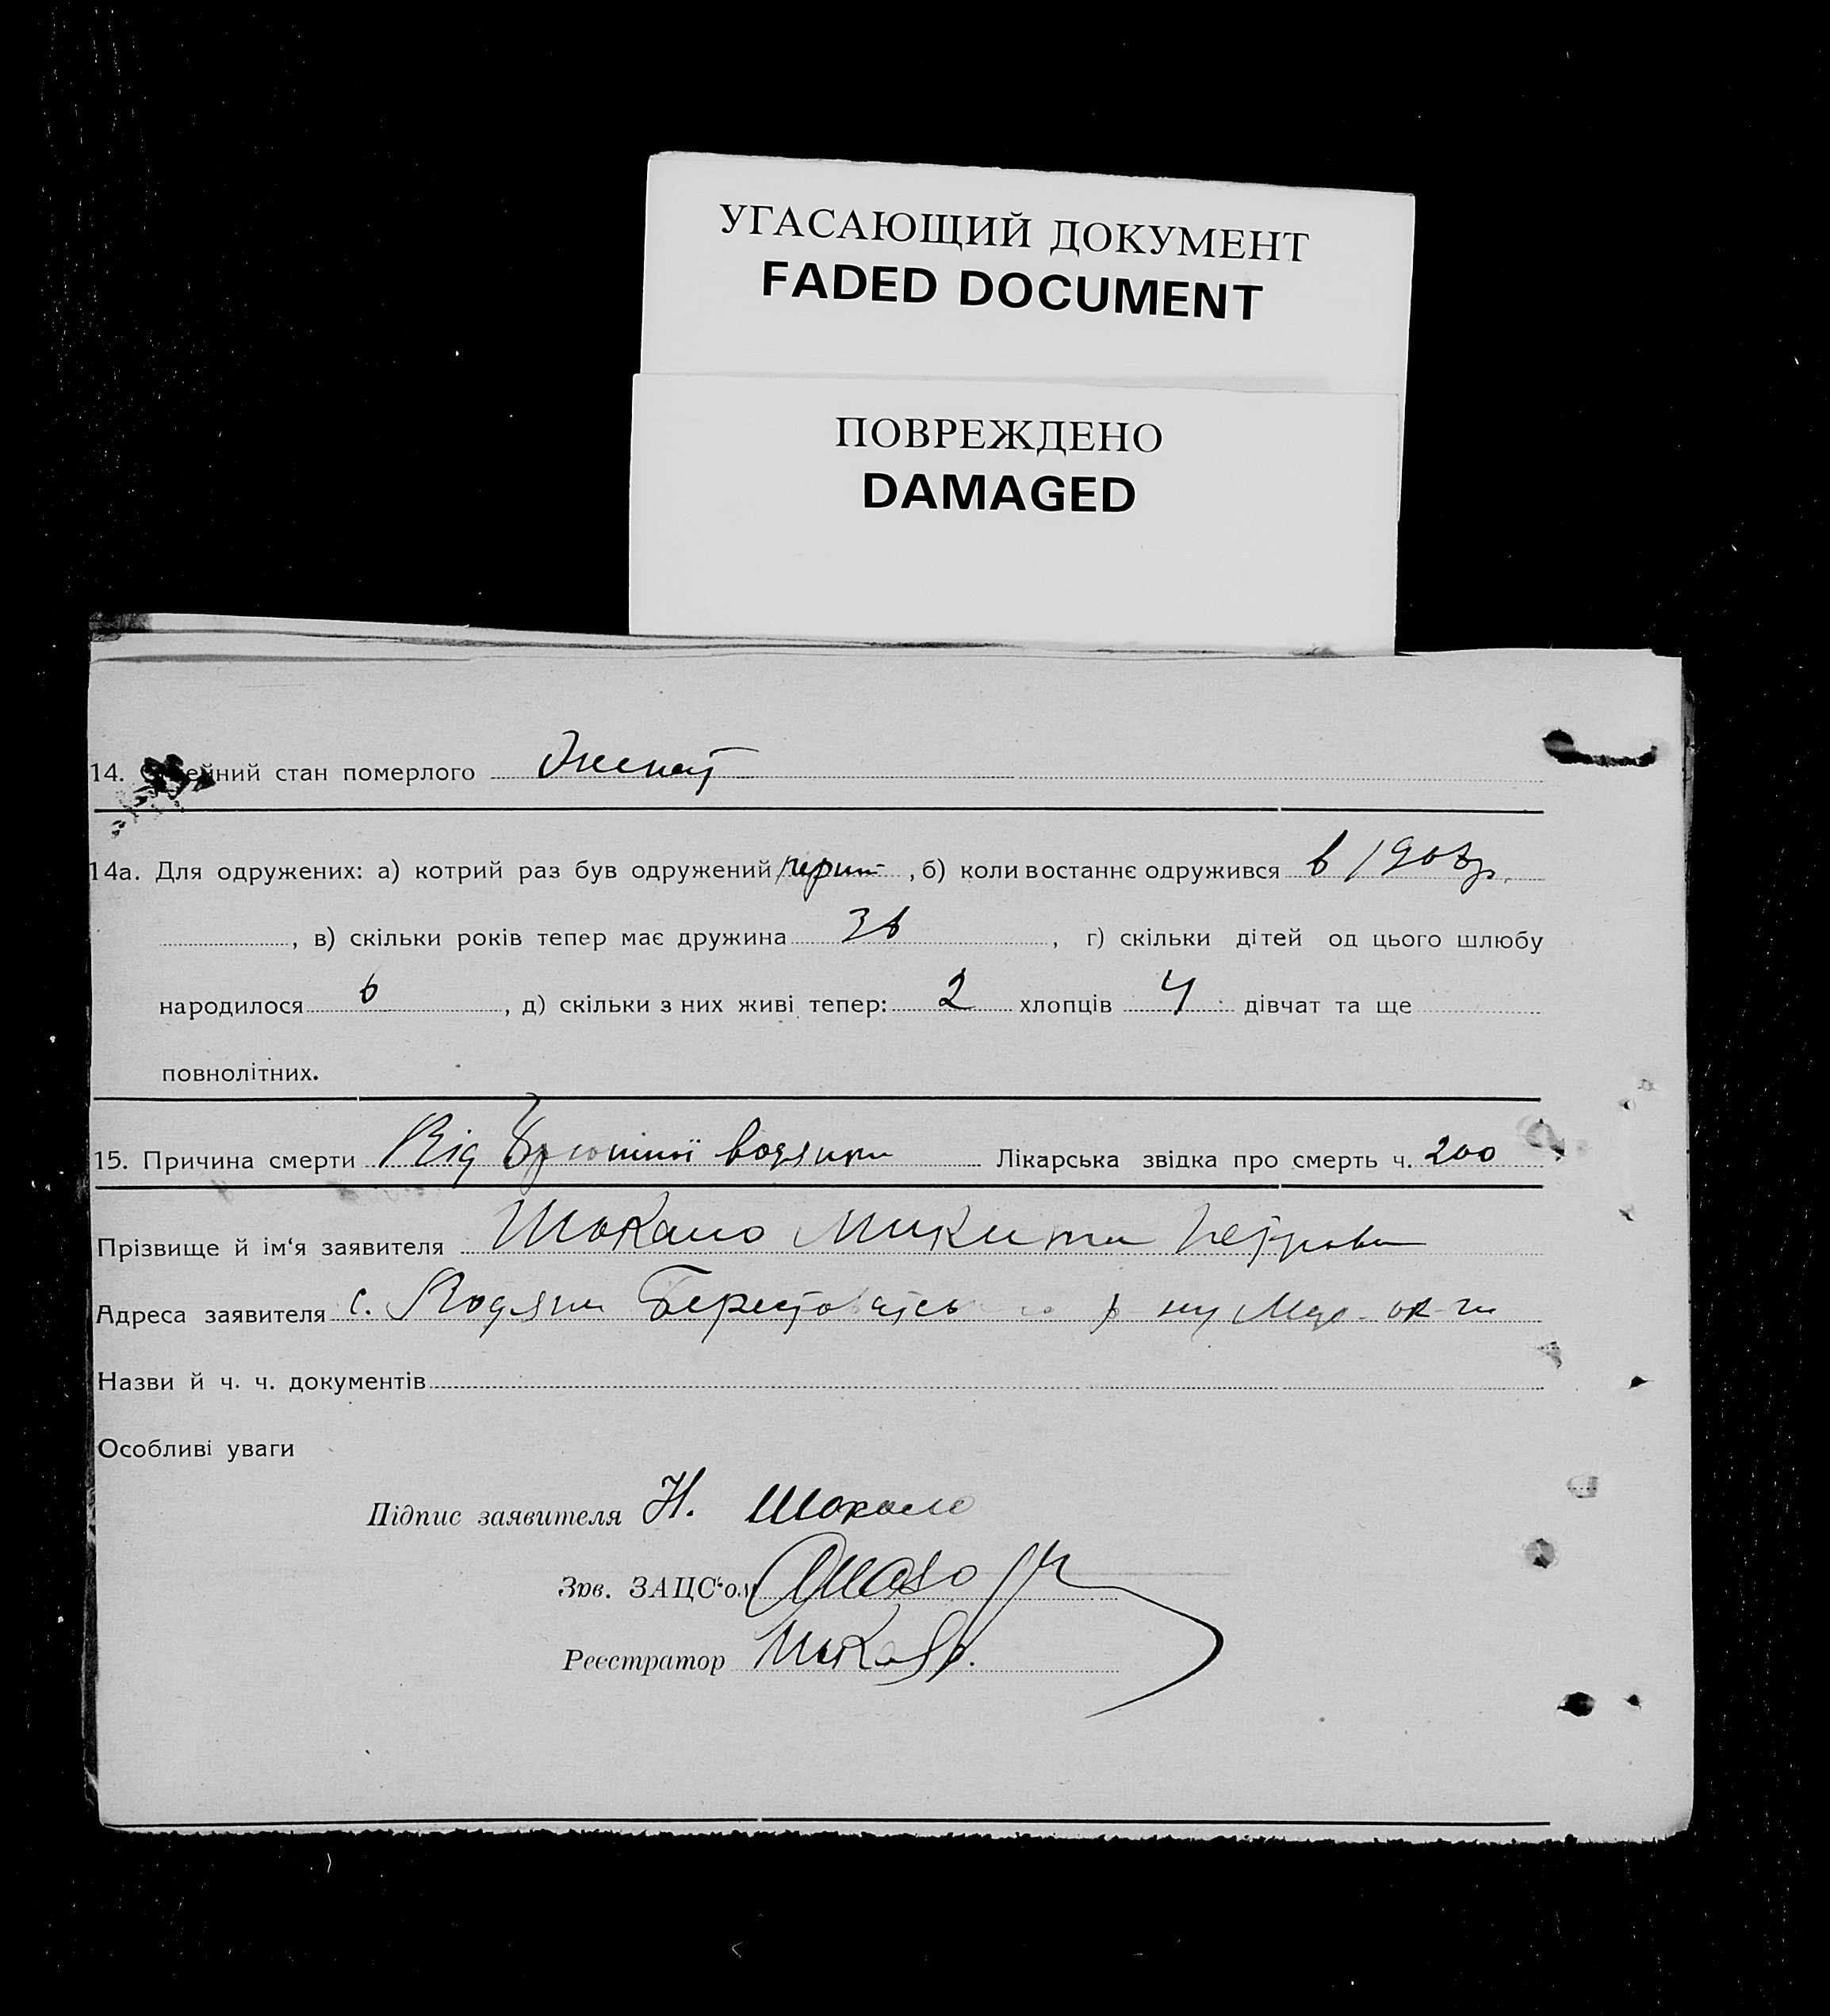 УГАСАЮЩИЙ ДОКУМЕНТ
FADED DOCUMENT
ПОВРЕЖДЕНО
DAMAGED
14. ейний стан померлого Женат
14а. Для одружених: а) котрий раз був одружений перший, б) коли востаннє одружився в
, в) скільки років тепер має дружина 36, г) скільки дітей од цього шлюбу
народилося 6, д) скільки з них живі тепер: 2 хлопців 4 дівчат та ще
повнолітних.
15. Причина смерти Від водянки Лікарська звідка про смерть ч. 200
Прізвище й ім‘я заявителя Шокало Микита
Адреса заявителя с. Водяни
Назви й ч. ч. документів
Особливі уваги
Підпис заявителя Н. Шокало
Зав. ЗАЦС‘ом
Реєстратор